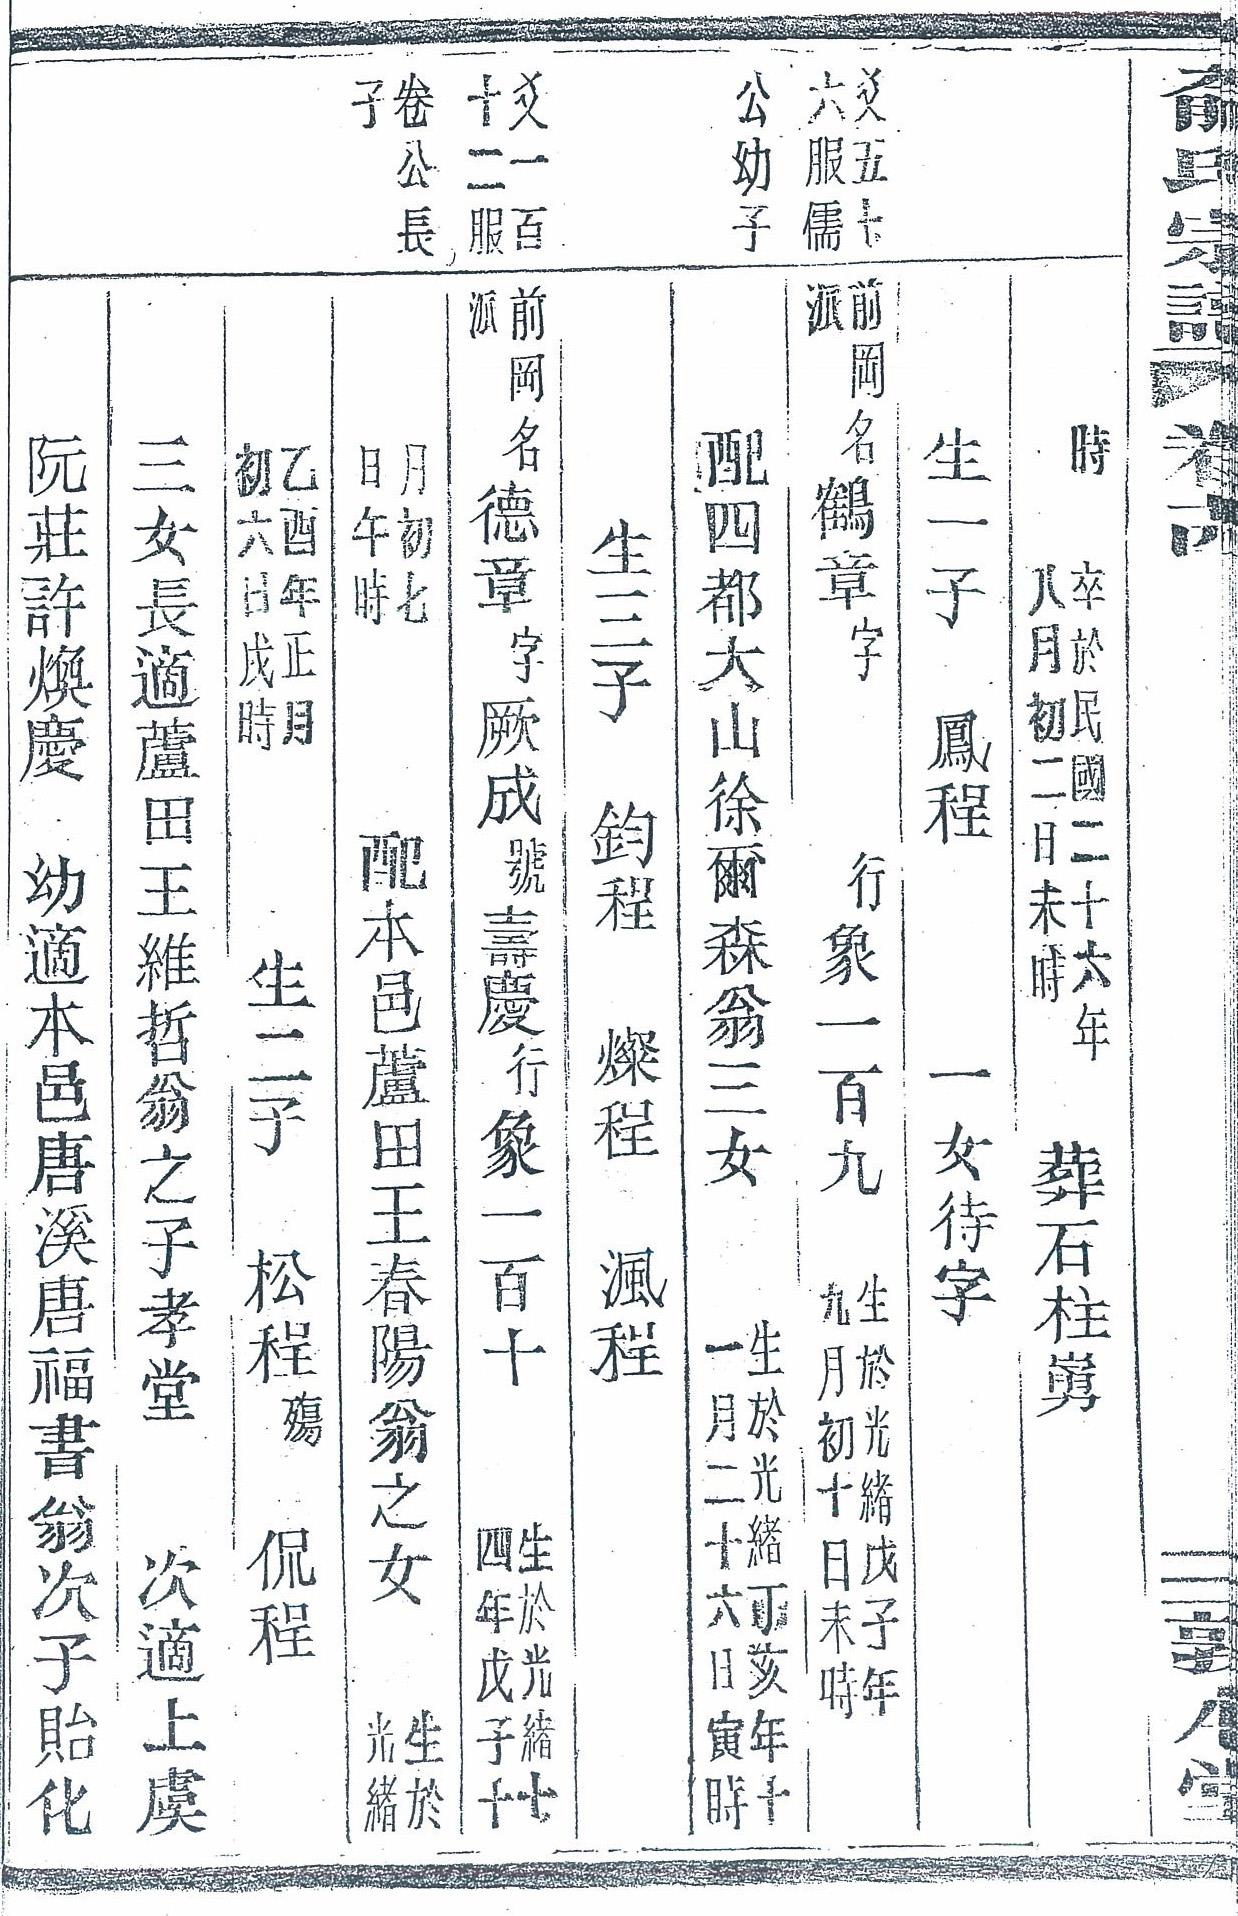 俞氏宗譜 卷六
二 敦 堂
時 卒於民國二十六年八月初二日未時 葬石柱嶴
生一子 鳳程 一女待字
爻五十六服儒公幼子
前岡派名鶴章字 行象一百九 生於光緒戊子年九月初十日未時
配四都大山徐爾森翁三女 生於光緒丁亥年十一月二十六日寅時
生三子 鈞程 燦程 渢程
爻一百十二服卷公長子
前岡派名德章字厥成號壽慶行象一百十 生於光緒十四年戊子十
月初七日午時 配本邑蘆田王春陽翁之女 生於光緒
乙酉年正月初六日戌時 生二子 松程殤 侃程
三女長適蘆田王維哲翁之子孝堂 次適上虞
阮莊許煥慶 幼適本邑唐溪唐福書翁次子貽化